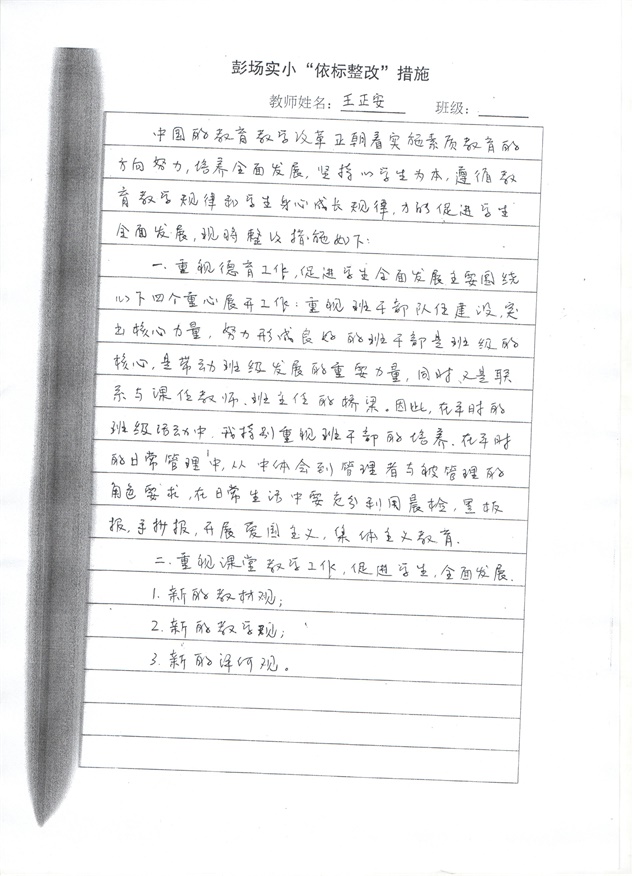 彭场实小“依标整改”措施
教师姓名：王正安 班级：
中国的教育教学改革正朝着实施素质教育的
方向努力，培养全面发展，坚持以学生为本，遵循教
育教学规律和学生身心成长规律，力的促进学生
全面发展，现将整改措施如下：
一．重视德育工作，促进学生全面发展主要围绕
以下四个重心展开工作：重视班干部队伍建设，突
出核心力量，努力形成良好的班干部是班级的
核心，是带动班级发展的重要力量，同时又是联
系与课任教师、班主任的桥梁。因此，在平时的
班级活动中，我特别重视班干部的培养．在平时
的日常管理中，从中体会到管理者与被管理的
角色要求，在日常生活中要充分利用晨检，黑板
报，手抄报，开展爱国主义，集体主义教育．
二．重视课堂教学工作，促进学生，全面发展．
1．新的教材观；
2．新的教学观；
3．新的评价观。